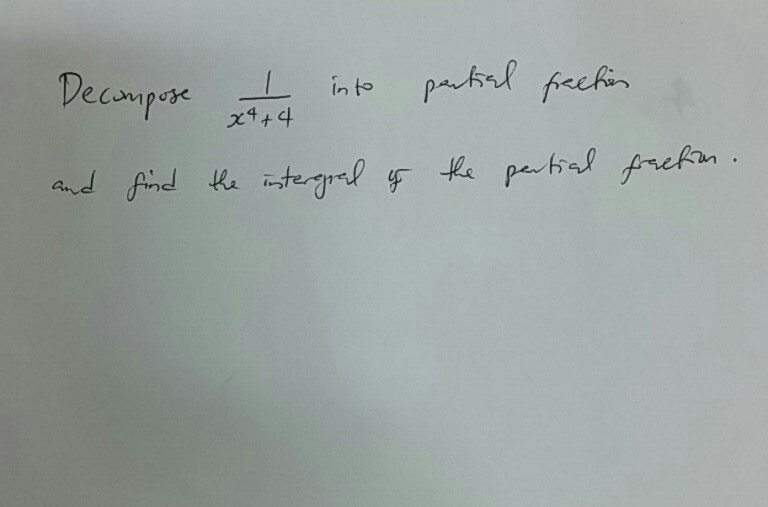 Decompose 1/x⁴+4 into partial fraction
and find the intergral of the partial fraction.